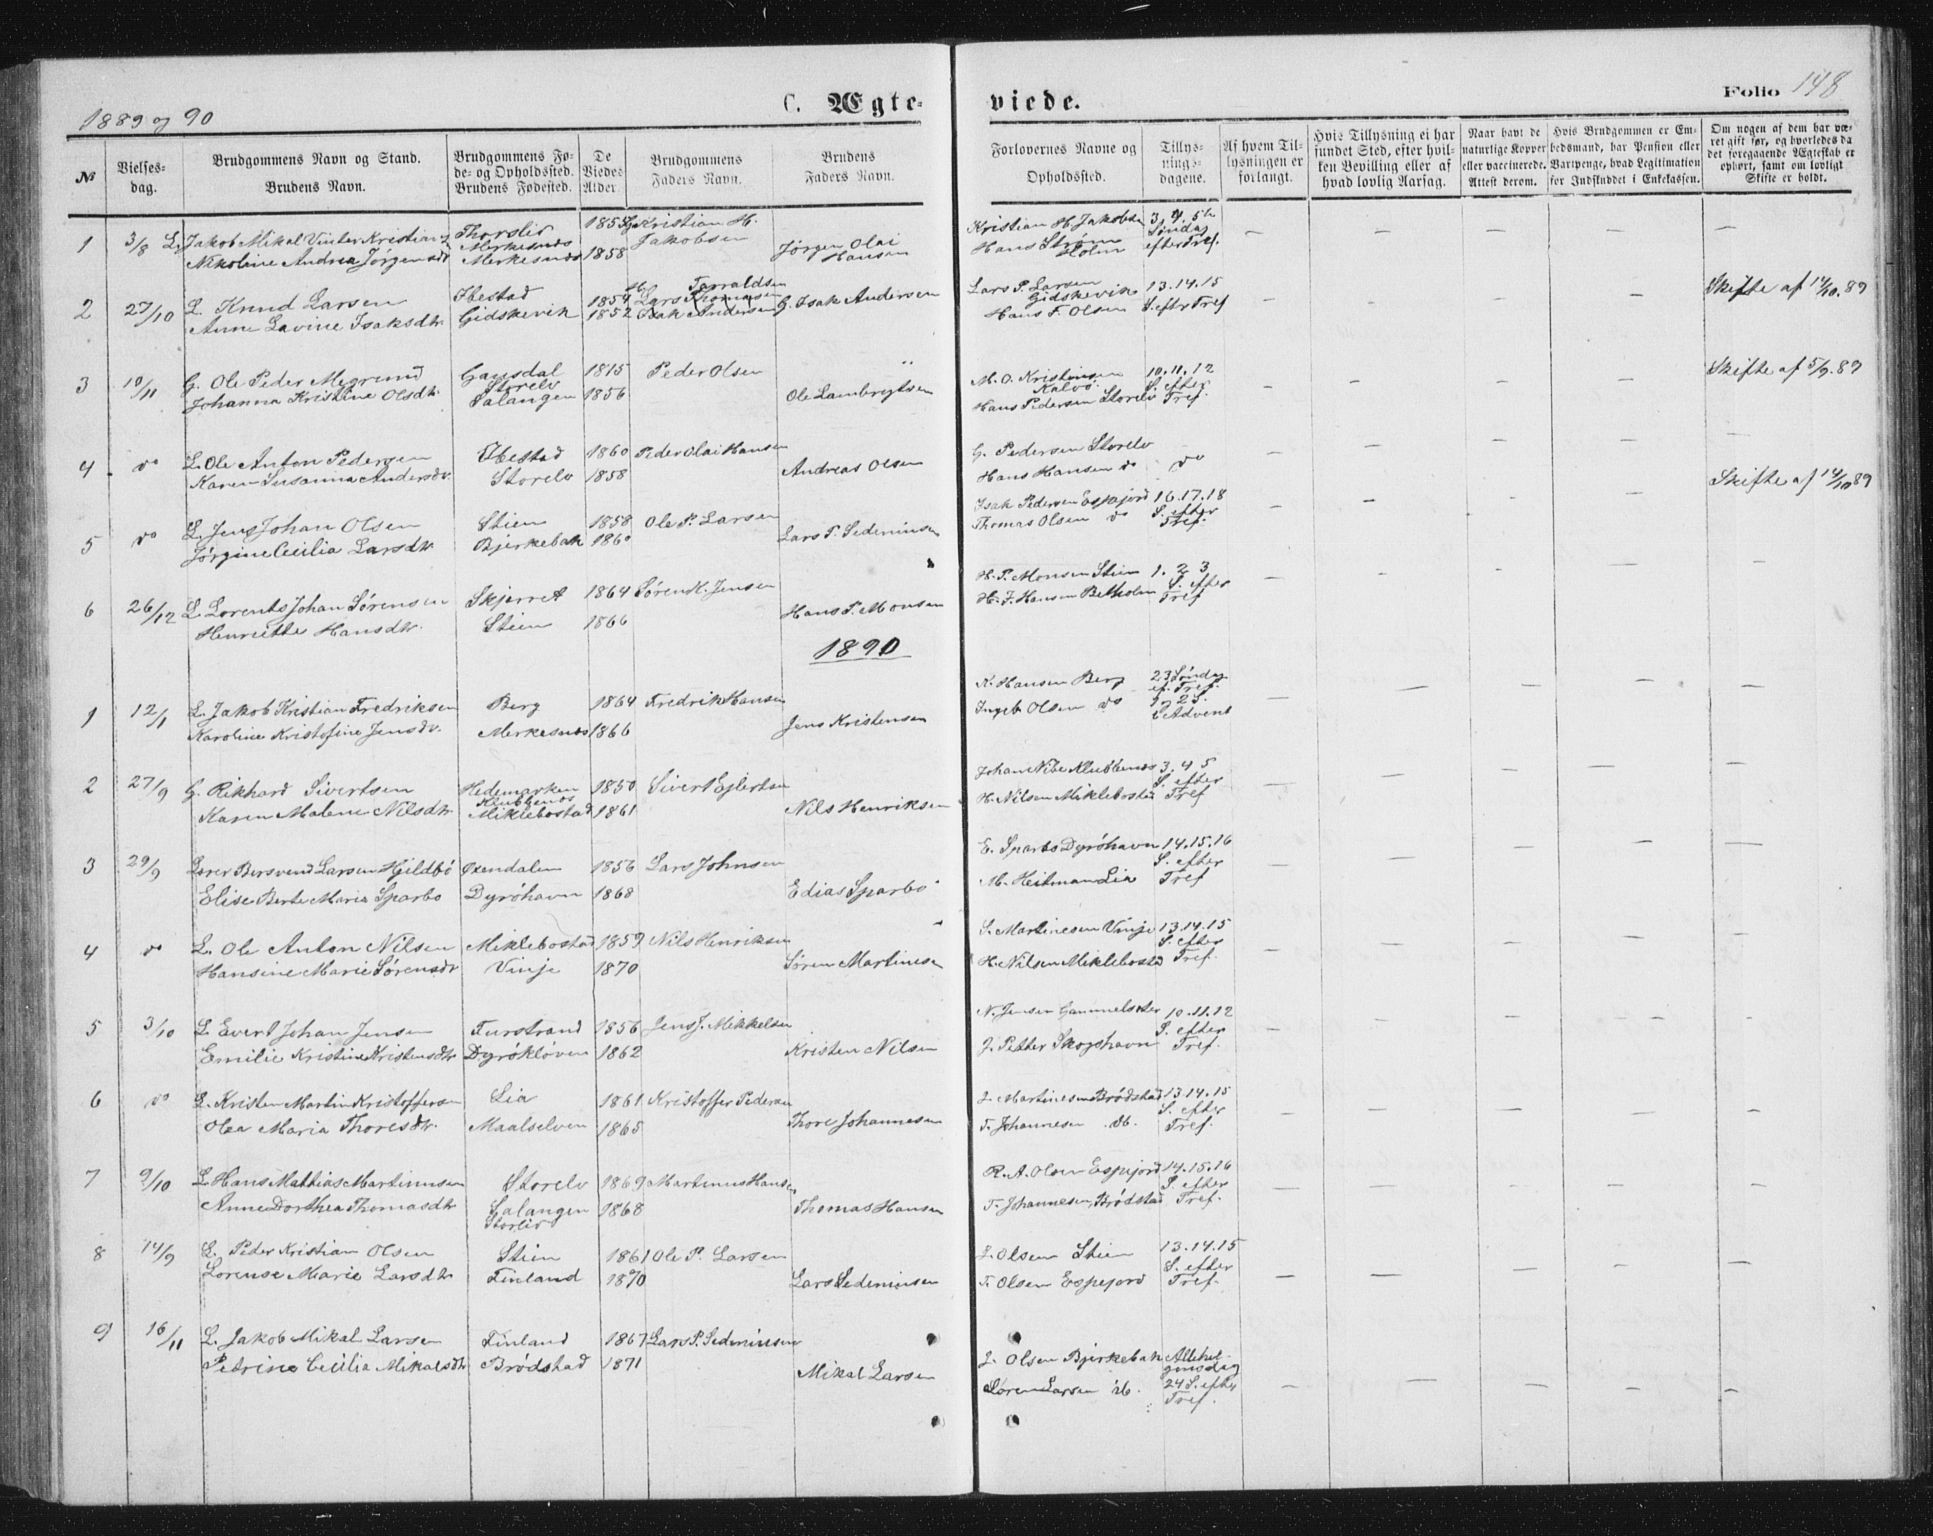 1889 og 90
C. Ægteviede.
Folio 148
No
Vielsesdag.
Brudgommens Navn og Stand.
Brudens Navn.
Brudgommens Føde- og Opholdssted.
Brudens Fødested.
De Viedes Alder
Brudgommens Faders Navn.
Brudens Faders Navn.
Forlovernes Navne og Opholdsted.
Tillysningsdagene.
Af hvem Tillysningen er forlangt.
Hvis Tillysning ei har fundet Sted, efter hvilken Bevilling eller af hvad lovlig Aarsag.
Naar havt de naturlige Kopper eller vaccinerede. Attest derom.
Hvis Brudgommen er Embedsmand, har Pension eller Vartpenge, hvad Legitimation for Indskuddet i Enkekassen.
Om nogen af dem har været gift før, og hvorledes da det foregaaende Ægteskab er ophørt, samt om lovligt Skifte er holdt.
1 3/8 Jakob Mikal Vinter Kristian Merkesnes Kristian H. Jakobsen Kristian H. Jakobsen 3, 4, 5te Søndag efter Tref.
Nikoline Andrea Jørgensdtr Merkesnes 1858 Jørgen Olai Hansen Hans Strøm Holm
2 27/10 L. Knud Larsen Ibestad 1854 Lars Torraldsen Lars P. Larsen Gidskevik 13.14.15 S. eftr Tref Skifte af 14/10.89
Anne Lavine Isaksdtr Gidskevik 1852 G. Isak Andersen Hans F. Olsen
3 10/11 G. Ole Peder Megrund Storelv 1815 Peder Olsen M. O. Kristensen Kalvø 10.11.12 S. efter Tref. Skifte af 5/9.89
Johanna Kristine Olsdtr Salangen 1856 Ole Lambrigtsen Hans Pedersen Storelv
4 do L. Ole Anton Pedersen Ibestad 1860 Peder Olai Hansen G. Pedersen Storelv
Karen Susanna Andersdtr Storelv 1858 Andreas Olsen Hans Hansen do do Skifte af 14/10 89
5 do L. Jens Johan Olsen Stien 1858 Ole P. Larsen Isak Pedersen Espejord 16.17.18 S. efter Tref.
Jørgine Cecilia Larsdtr Bjerkebak 1860 Lars P. Sedeniusen Thomas Olsen do
6 26/12 L. Lorents Johan Sørensen Skjerret 1864 Søren K. Jensen H. P. Monsen Stien 1. 2 3 S. efter Tref
Henriette Hansdtr. Stien 1866 Hans P. Monsen H. J. Hansen Betholm
1890
1 12/1 L. Jakob Kristian Fredriksen Berg 1864 Fredrik Hansen K. Hansen Berg 23 Søndag ef. Tref.
Karoline Kristofine Jensdtr. Merkesnes 1866 Jens Kristensen Ingeb. Olsen do 1 og 2 S. i Advent
2 27/9 G. Rikhard Sivertsen Hedemarken Klubbenes 1850 Sivert Ejlertsen Johan Nibe Klubbenes 3. 4 5 S. efter Tref
Karen Malene Nilsdtr Miklebostad 1861 Nils Henriksen H. Nilsen Miklebostad
3 29/9 Bersvend Larsen Hjildbø Øxendalen 1856 Lars Johnsen E. Sparbo Dyrøhavn 14.15.16 S. efter Tref
Elise Berte Marie Sparbo Dyrøhavn 1868 Edias Sparbo M. Heitman Lia
4 do L. Ole Anton Nilsen Miklebostad 1859 Nils Henriksen S. Martinesen Vinje 13.14.15 S. efter Tref.
Hansine Marie Sørensdtr Vinje 1870 Søren Martinesen H. Nilsen Miklebostad
5 3/10 L. Evert Johan Jensen Furstrand 1856 Jens J. Mikkelsen N. Jensen Gammelseter 10.11.12 S. efter Tref.
Emilie Kristine Kristensdtr Dyrøkløven 1862 Kristen Nilsen J. Petter Skogshavn
6 do L. Kristen Martin Kristoffersen Lia 1861 Kristoffer Pedersen J. Martinesen Brødstad 13.14.15 S. efter Tref.
Olea Maria Thoresdtr. Maalselven 1865 Thore Johannesen T. Johannesen ib.
7 9/10 L. Hans Mathias Martinusen Storelv 1869 Martinus Hansen R. A. Olsen Espejord 14.15.16 S. efter Tref.
Anne Dorthea Thomasdtr Salangen Storelv 1868 Thomas Hansen T. Johannesen, Brødstad
8 14/9 L. Peder Kristian Olsen Stien 1861 Ole P. Larsen J. Olsen Stien 13.14.15 S. efter Tref.
Lorense Marie Larsdtr Finland 1870 Lars Sedeniusen T. Olsen Espejord
9 16/11 L. Jakob Mikal Larsen Finland 1867 Lars P. Sedeniusen
Petrine Cecilia Mikalsdtr Brødstad 1871 Mikal Larsen J. Olsen Bjerkebak Allehelgensdag
Søren Larsen ib. 24 S. efter Tref.